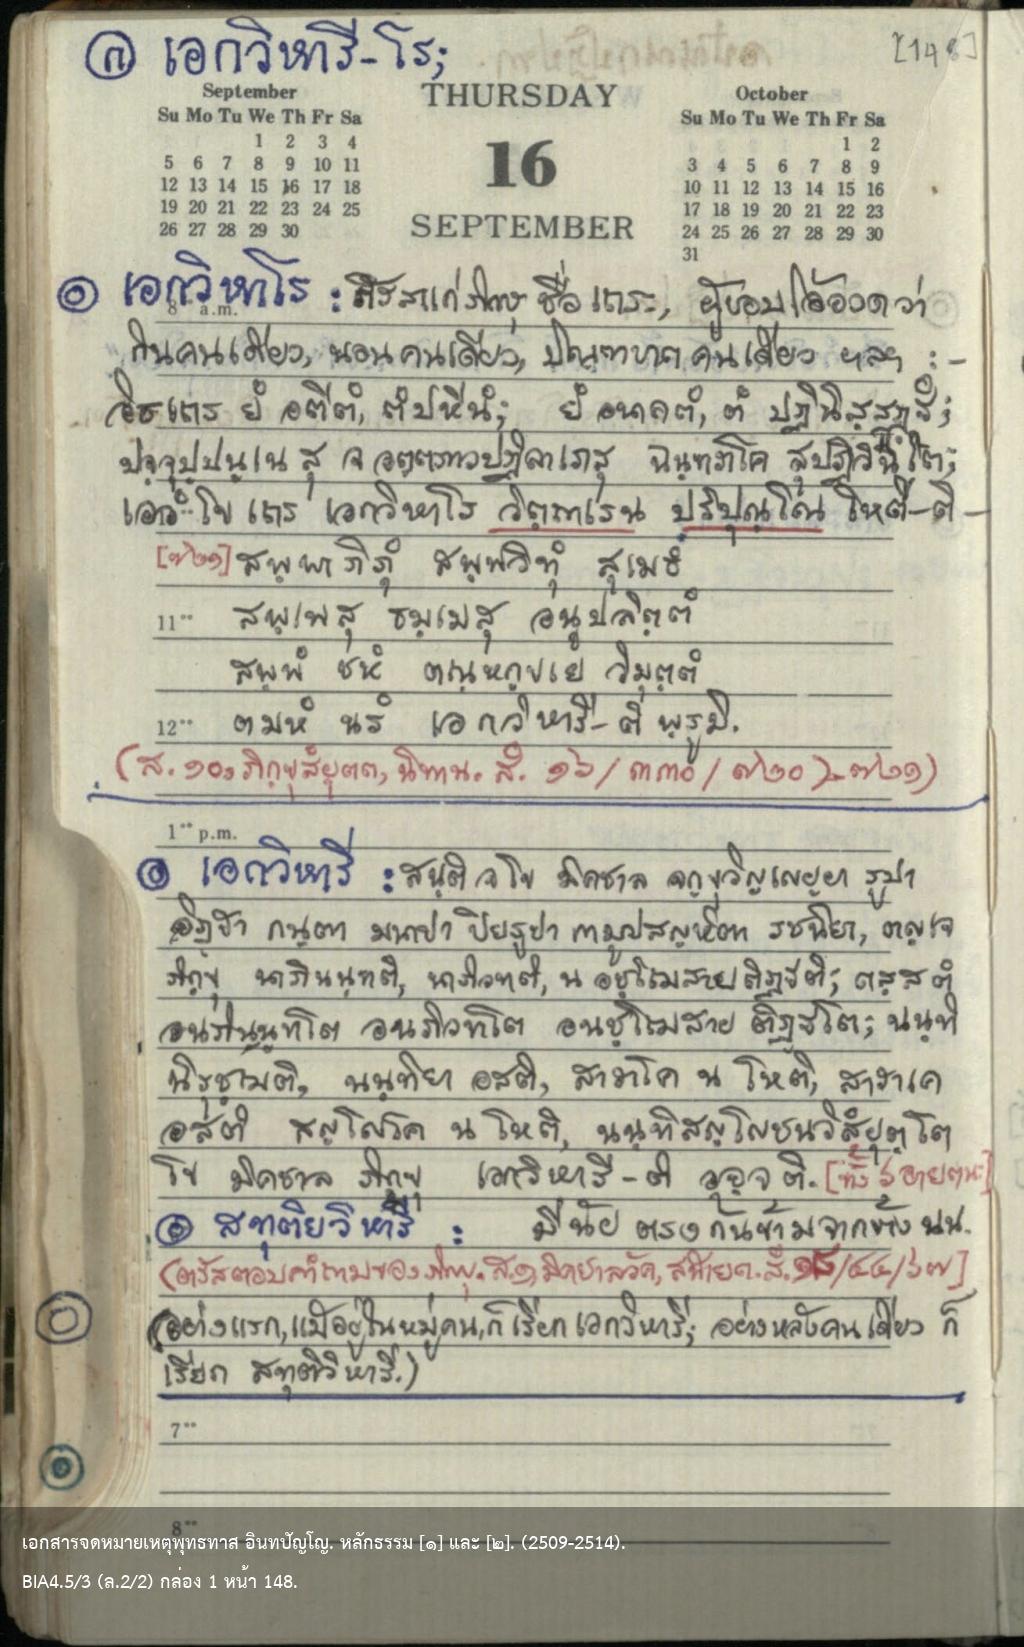 ก เอกวิหารี-โร;
[148]
September
Su Mo Tu We Th Fr Sa
1 2 3 4
5 6 7 8 9 10 11
12 13 14 15 16 17 18
19 20 21 22 23 24 25
26 27 28 29 30
THURSDAY
16
SEPTEMBER
October
Su Mo Tu We Th Fr Sa
1 2
3 4 5 6 7 8 9
10 11 12 13 14 15 16
17 18 19 20 21 22 23
24 25 26 27 28 29 30
31
๑ เอกวิหาโร : ตรัสแก่ภิกษุ ชื่อเถระ, ผู้ชอบโอ้อวดว่า
8 a.m.
กินคนเดียว, นอนคนเดียว, บิณฑบาตคนเดียว ฯลฯ :-
อิธ เถร ยํ อตีตํ, ตํ ปหีนํ; ยํ อนาคตํ, ตํ ปฏินิสฺสฏฺฐํ;
ปจฺจุปฺปนฺเน สุ จ อตฺตภาวปฏิลาเภสุ ฉนฺทราโค สุปฏิวินีโต;
เอวํ โข เถร เอกวิหาโร วิตฺถาเรน ปริปุณฺโณ โหตี-ติ-
[๗๒๑] สพฺพาภิภุํ สพฺพวิทุํ สุเมธํ
11°° สพฺเพสุ ธมฺเมสุ อนูปลิตฺตํ
สพฺพํ ชหํ ตณฺหกฺขเย วิมุตฺตํ
12°° ตมหํ นรํ เอกวิหารี-ติ พฺรูมิ.
(ส. ๑๐, ภิกฺขุสํยุตต, นิทาน. สํ. ๑๖/๓๓๐/๗๒๐-๗๒๑)
1°° p.m.
๑ เอกวิหารี : สนฺติ จ โข มิคชาล จกฺขุวิญฺเญยฺยา รูปา
อิฏฺฐา กนฺตา มนาปา ปิยรูปา กามูปสญฺหิตา รชนียา, ตญฺเจ
ภิกฺขุ นาภินนฺทติ, นาภิวทติ, น อชฺโฌสาย ติฏฺฐติ; ตสฺส ตํ
อนภินนฺทโต อนภิวทโต อนชฺโฌสาย ติฏฺฐโต; นนฺทิ
นิรุชฺฌติ, นนฺทิยา อสติ, สาราโค น โหติ, สาราเค
อสติ สญฺโญโค น โหติ, นนฺทิสญฺโญชนวิสํยุตฺโต
โข มิคชาล ภิกฺขุ เอกวิหารี-ติ วุจฺจติ. [ทั้ง ๖ อายตนะ]
๑ สทุติยวิหารี : มีนัยตรงกันข้ามจากข้างบน.
(ตรัสตอบคำถามของภิกษุ. ส. ๑ มิคชาลวัค, สฬายต. สํ. ๑๘/๔๔/๖๗]
(อย่างแรก, แม้อยู่ในหมู่คน, ก็เรียกเอกวิหารี; อย่างหลังคนเดียว ก็
เรียก สทุติวิหารี.)
7°°
8°°
เอกสารจดหมายเหตุพุทธทาส อินทปัญโญ. หลักธรรม [๑] และ [๒]. (2509-2514).
BIA4.5/3 (ล.2/2) กล่อง 1 หน้า 148.